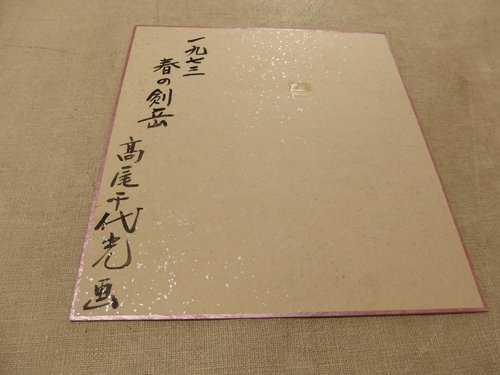 一九七三
春の剣岳
髙尾千代光画